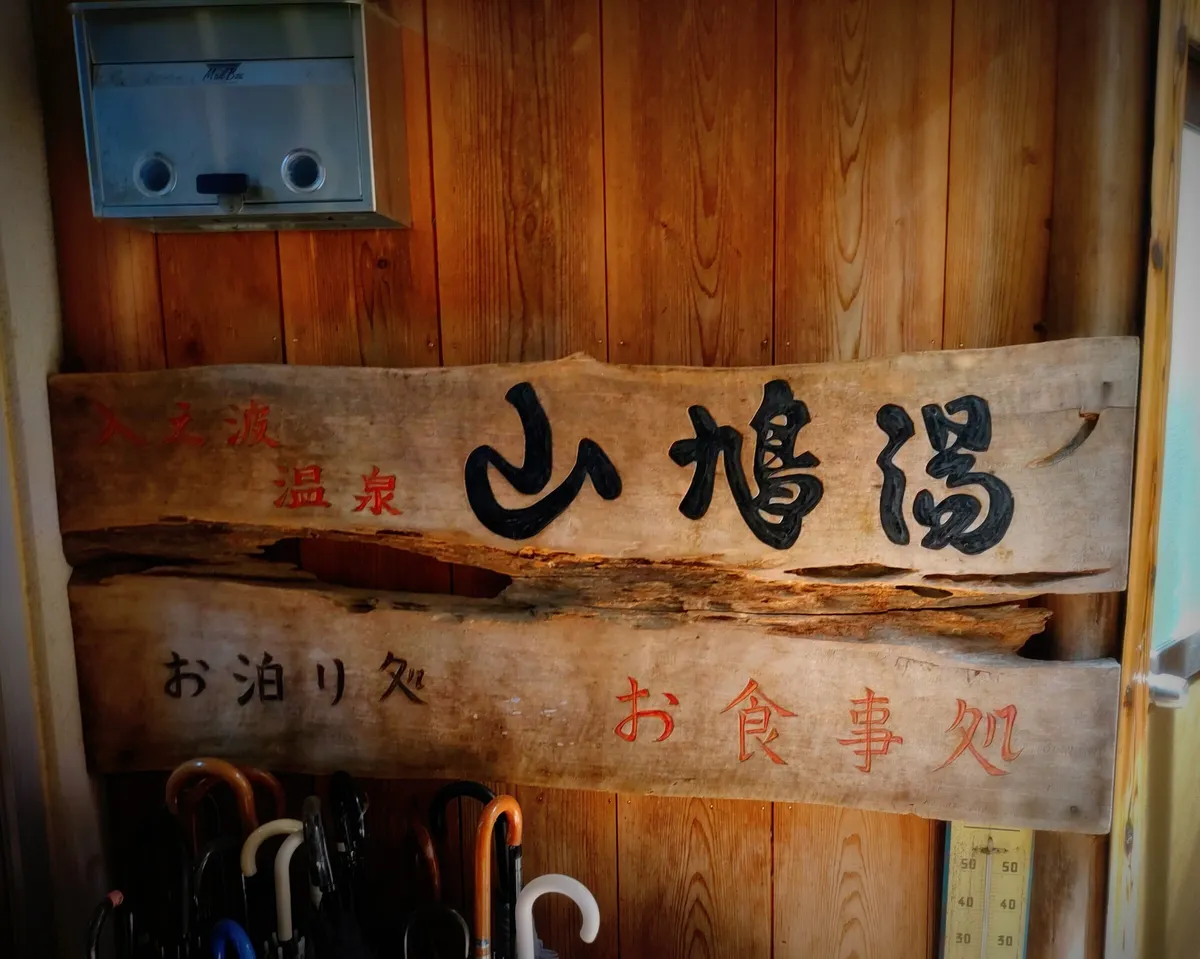 Mail Box
入之波
温泉
山鳩湯
お泊り処
お食事処
50 50
40 40
30 30